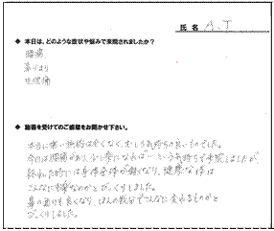 氏名 A.T
◆ 本日は、どのような症状や悩みで来院されましたか?
腰痛
鼻づまり
生理痛
◆ 施術を受けてのご感想をお聞かせ下さい。
本当に痛い施術は全くなく、むしろ気持ちの良いものでした。
今日は腰痛があり、少し楽になれば…という気持ちで来院しましたが、
終わった時には身体全体が軽くなり、健康な体は
こんなに楽なのかとびっくりしました。
鼻の通りも良くなり、ほんの数分でこんなに変わるものかと
びっくりしました。